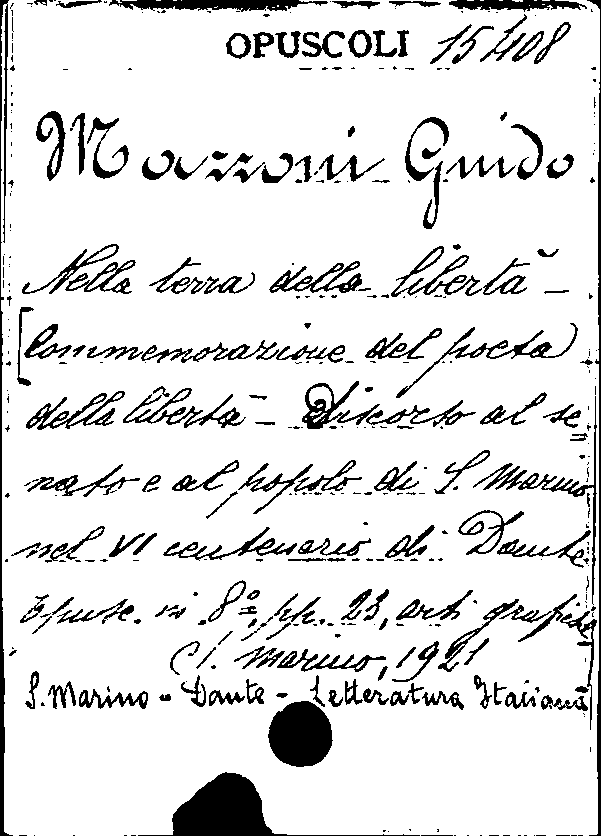 OPUSCOLI 15408
Mazzoni Guido
Nella terra della libertà -
[Commemorazione del poeta
della libertà - Discorso al se=
nato e al popolo di S. Marino
nel VI centenario di Dante
opusc. in 8º, pp. 23, arti grafiche
S. Marino, 1921
S. Marino - Dante - Letteratura Italiana